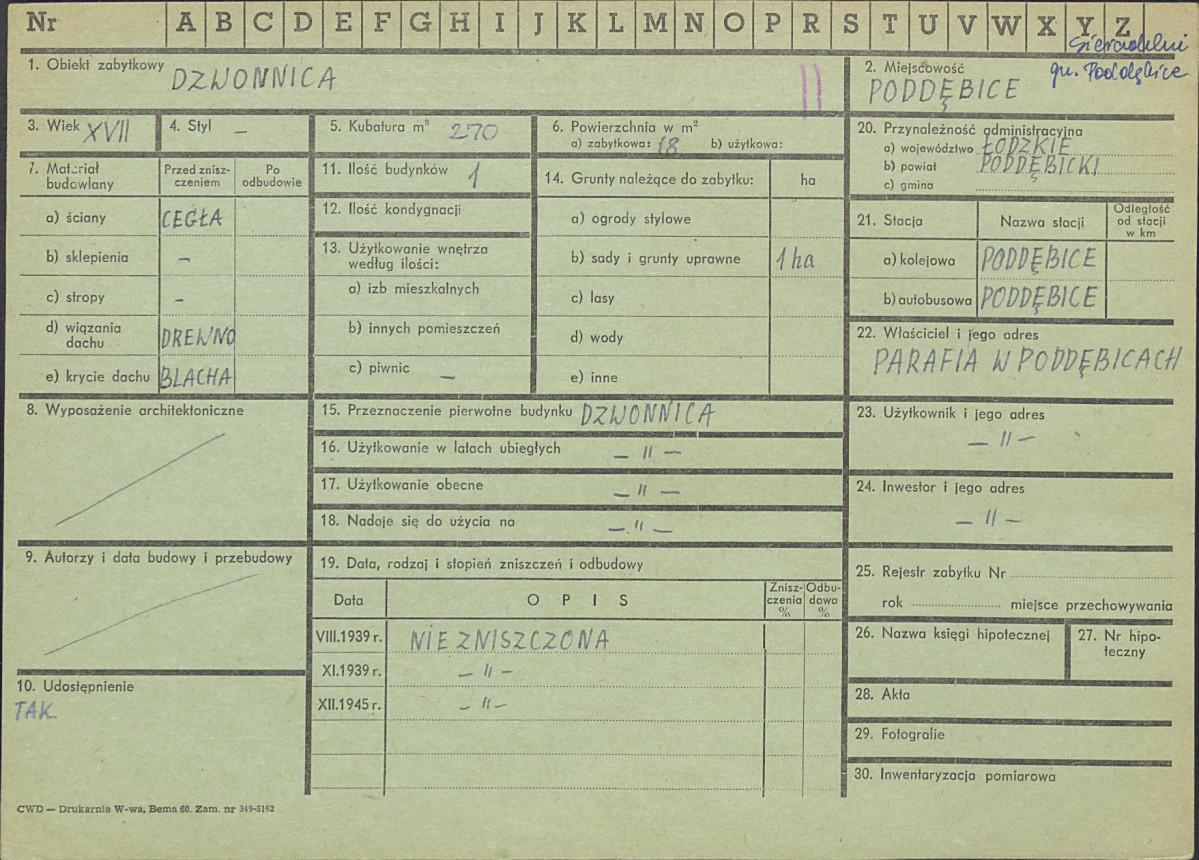 Nr A B C D E F G H I J K L M N O P R S T U V W X Y Z
gm. Poddębice
1. Obiekt zabytkowy DZWONNICA
2. Miejscowość
PODDĘBICE
3. Wiek XVII
4. Styl –
5. Kubatura m³ 270
6. Powierzchnia w m²
a) zabytkowa: 18 b) użytkowa:
20. Przynależność administracyjna
a) województwo ŁÓDZKIE
b) powiat PODDĘBICKI
c) gmina
7. Materiał budowlany
Przed zniszczeniem
Po odbudowie
a) ściany CEGŁA
b) sklepienia –
c) stropy –
d) wiązania dachu DREWNO
e) krycie dachu BLACHA
11. Ilość budynków 1
12. Ilość kondygnacji
13. Użytkowanie wnętrza
według ilości:
a) izb mieszkalnych
b) innych pomieszczeń
c) piwnic –
14. Grunty należące do zabytku: ha
a) ogrody stylowe
b) sady i grunty uprawne 1 ha
c) lasy
d) wody
e) inne
21. Stacja Nazwa stacji Odległość od stacji w km
a) kolejowa PODDĘBICE
b) autobusowa PODDĘBICE
22. Właściciel i jego adres
PARAFIA W PODDĘBICACH
8. Wyposażenie architektoniczne
15. Przeznaczenie pierwotne budynku DZWONNICA
16. Użytkowanie w latach ubiegłych – " –
17. Użytkowanie obecne – " –
18. Nadaje się do użycia na – " –
23. Użytkownik i jego adres
– " –
24. Inwestor i jego adres
– " –
9. Autorzy i data budowy i przebudowy
19. Data, rodzaj i stopień zniszczeń i odbudowy
Data OPIS Zniszczenia % Odbudowa %
VIII.1939 r. NIE ZNISZCZONA
XI.1939 r. – " –
XII.1945 r. – " –
25. Rejestr zabytku Nr
rok miejsce przechowywania
26. Nazwa księgi hipotecznej
27. Nr hipoteczny
10. Udostępnienie
TAK.
28. Akta
29. Fotografie
30. Inwentaryzacja pomiarowa
CWD — Drukarnia W-wa, Bema 60. Zam. nr 349-5162